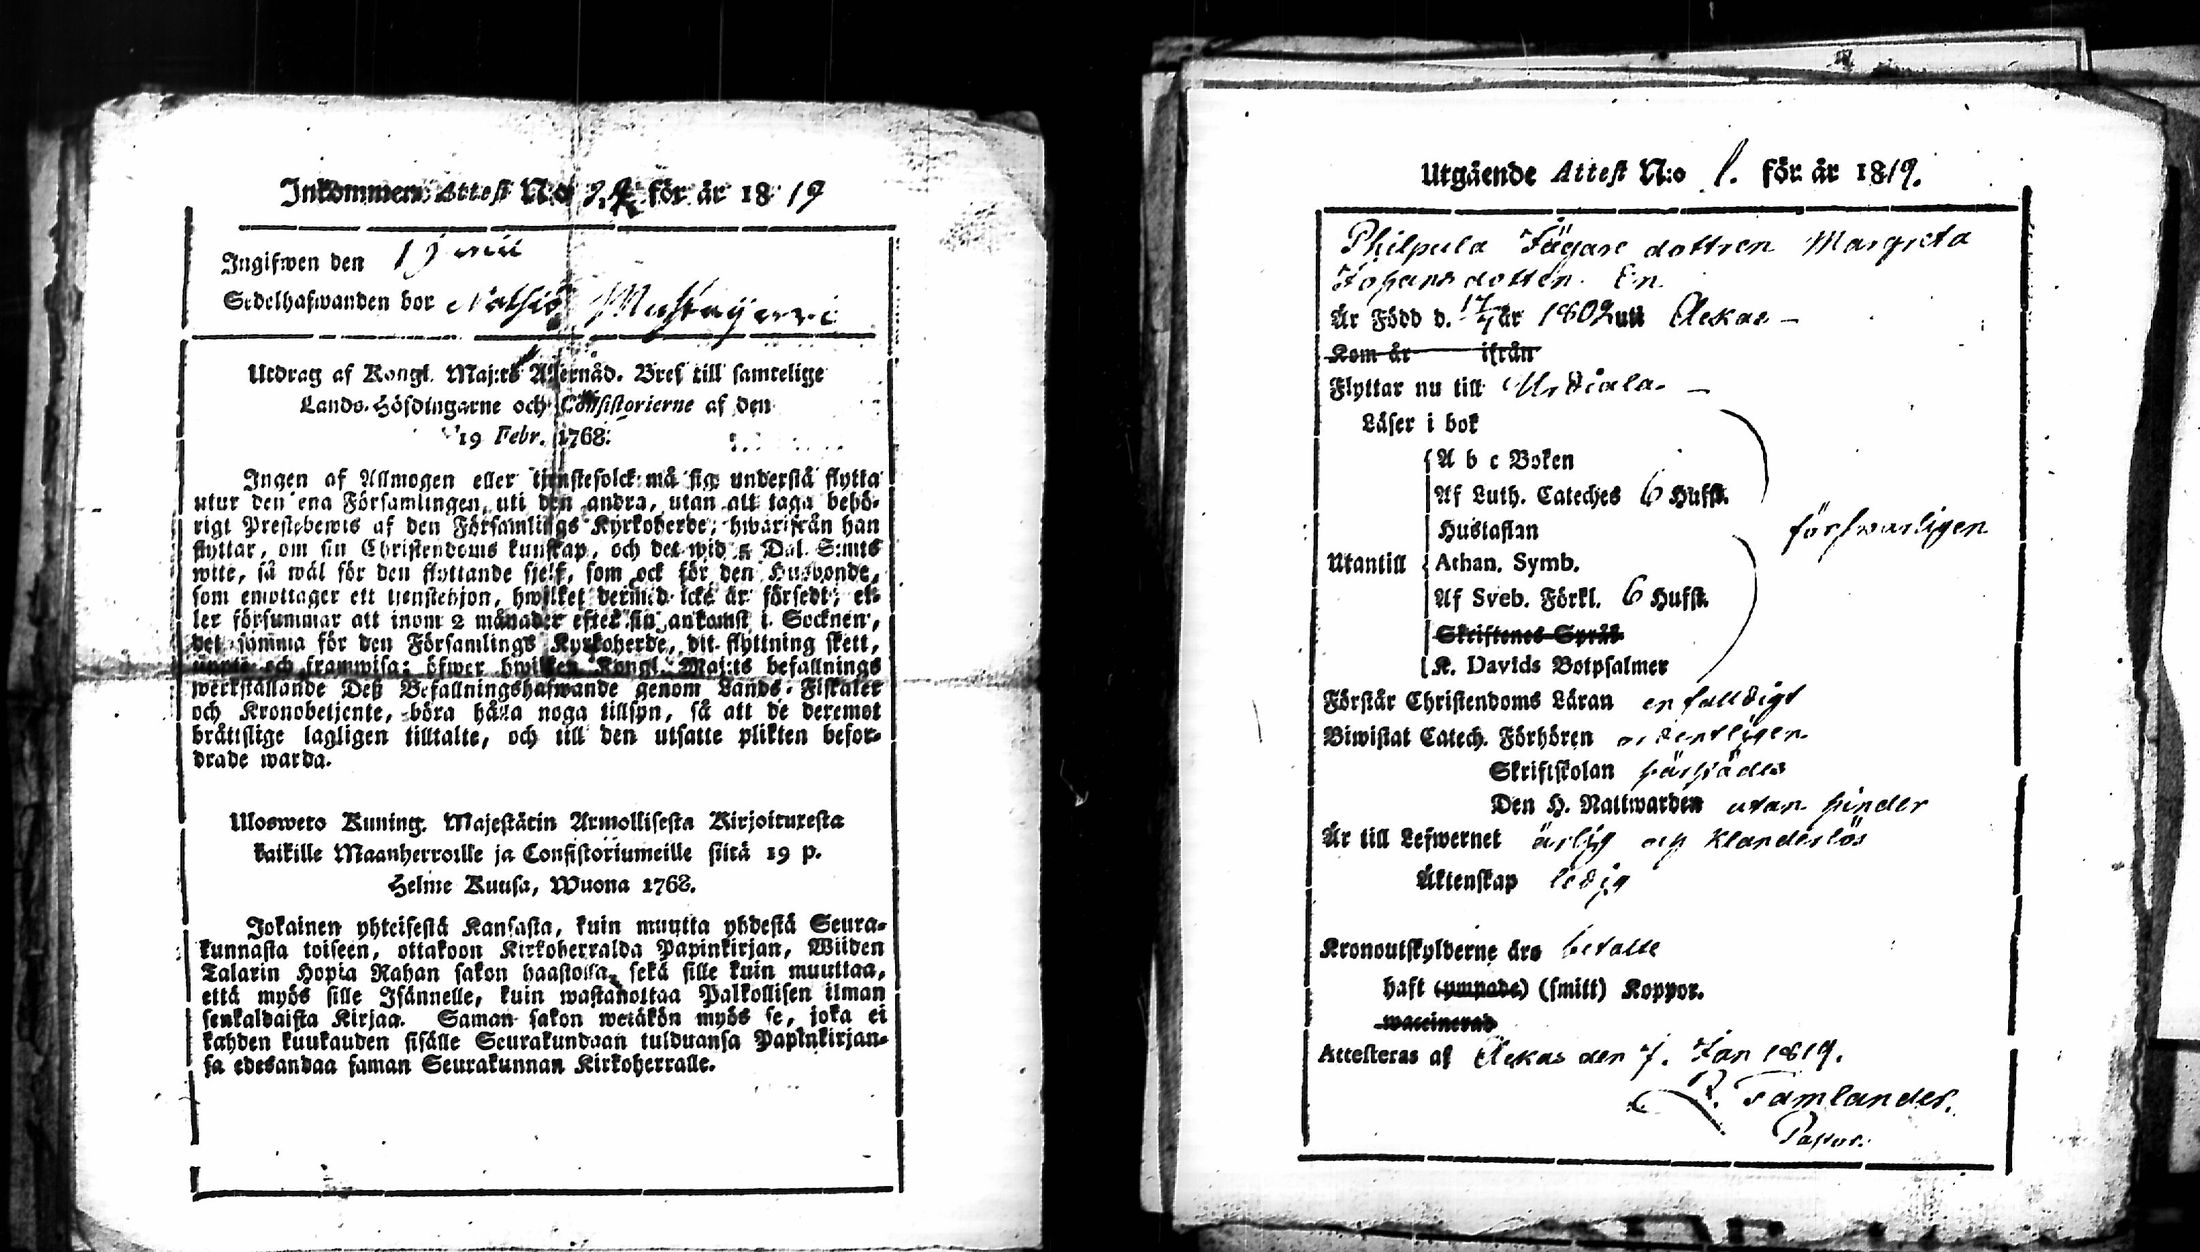 Inkommen Attest N:o för år 1819
Ingifwen den
Sedelhafwanden bor Mustajerwi
Utdrag af Kongl. Maj:ts Allernåd. Bref till samtelige
Lands-Höfdingarne och Consistorierne af den
19 Febr. 1768.
Ingen af Allmogen eller tjenstefolck må sig understå flytta
utur den ena Församlingen uti den andra, utan att taga behö-
rigt Prestebewis af den Församlings Kyrkoherde, hwarifrån han
flyttar, om sin Christendoms kunskap, och det wid 5 Dal. S:mts
wite, så wäl för den flyttande sjelf, som ock för den Husbonde,
som emottager ett tjenstehjon, hwilket dermed icke är försedt; el-
ler försummar att inom 2 månader efter sin ankomst i Socknen,
det samma för den Församlings Kyrkoherde, dit flyttning skett,
uppte och framwisa; öfwer hwilken Kongl. Maj:ts befallnings
werkställande Deß Befallningshafwande genom Lands-Fiskaler
och Kronobetjente, böra hålla noga tillsyn, så att de deremot
bråttslige lagligen tilltalte, och till den utsatte plikten befor-
drade warda.
Ulosweto Kuning. Majestätin Armollisesta Kirjoituxesta
kaikille Maanherroille ja Consistoriumeille siitä 19 p.
Helme Kuusa, Wuona 1768.
Jokainen yhteisestä Kansasta, kuin muutta yhdestä Seura-
kunnasta toiseen, ottakoon Kirkoherralda Papinkirjan, Wiiden
Talarin Hopia Rahan sakon haastolla, sekä sille kuin muuttaa,
että myös sille Isännelle, kuin wastanottaa Palkollisen ilman
senkaldaista Kirjaa. Saman sakon wetäkön myös se, joka ei
kahden kuukauden sisälle Seurakundaan tulduansa Papinkirjan-
sa edesandaa saman Seurakunnan Kirkoherralle.
Utgående Attest N:o 1. för år 1819.
Philpula Jägare dottren Margreta
Johans dotter. En
Är Född d. 17/7 år 1802 uti Ackas –
Kom år ifrån
Flyttar nu till Urdiala. –
Läser i bok
A b c Boken
Af Luth. Cateches 6 Hufst.
Hustaflan
försvarligen
Utantill Athan. Symb.
Af Sveb. Förkl. 6 Hufst.
Skriftenes Språk
K. Davids Botpsalmer
Förstår Christendoms Läran enfalldigt
Biwistat Catech. Förhören ordentligen
Skriftskolan
Den H. Nattwarden utan hinder
Är till Lefwernet ärlig och klanderlös
Äktenskap ledig
Kronoutskylderne äro betalte
haft (ympade) (smitt) Koppor.
waccinerad
Attesteras af Ackas den 7. Jan 1819.
R. Tamlander.
Pastor.